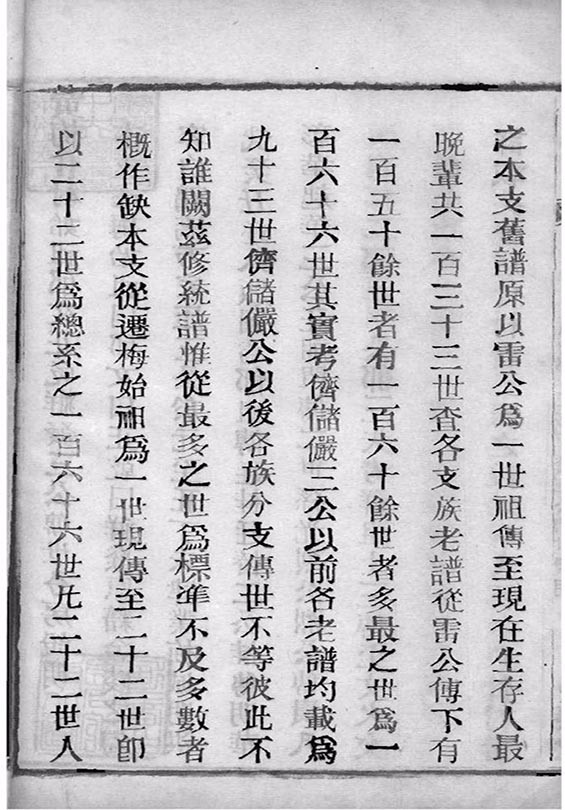 之本支舊譜原以雷公爲一世祖傳至現在生存人最
晚輩共一百三十三世查各支族老譜從雷公傳下有
一百五十餘世者有一百六十餘世者多最之世爲一
百六十六世其實考儕儲儼三公以前各老譜均載爲
九十三世儕儲儼公以後各族分支傳世不等彼此不
知誰闕茲修統譜惟從最多之世爲標準不及多數者
概作缺本支從遷梅始祖爲一世現傳至二十二世卽
以二十二世爲總系之一百六十六世凡二十二世人